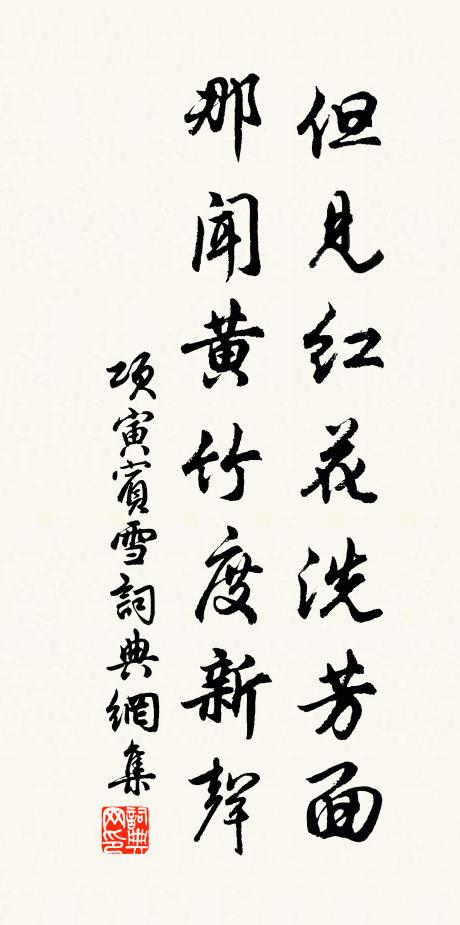 但見红花洗芳面
那聞黄竹度新聲
項寅賓雪詞典網集
詞典网印